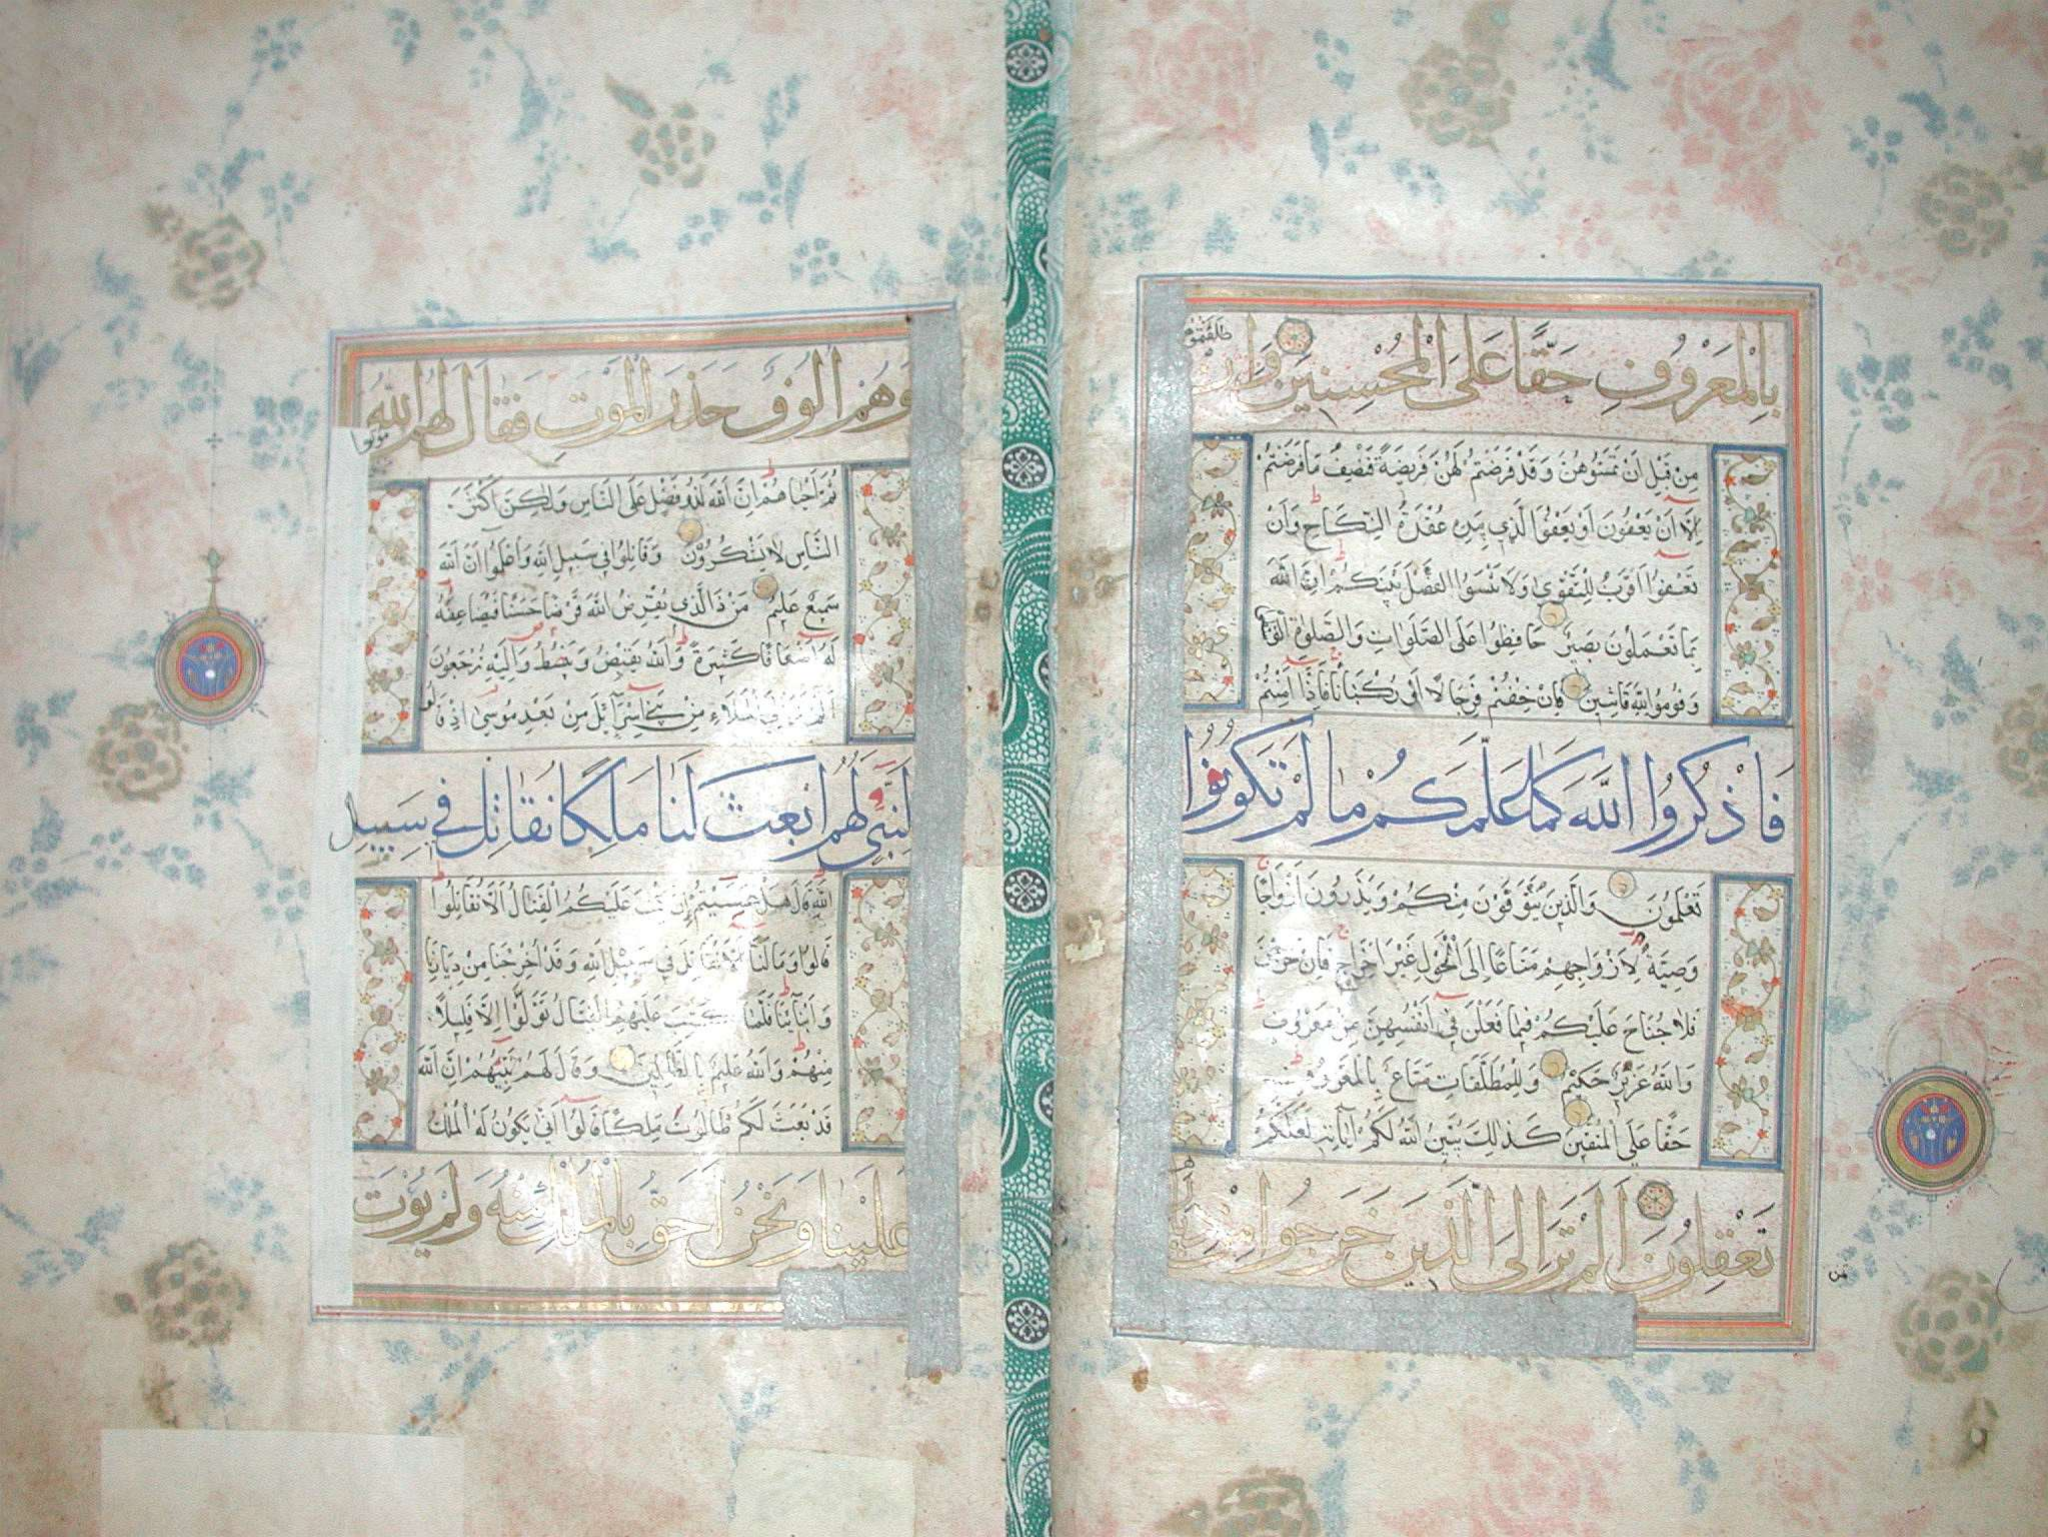 بِالْمَعْرُوفِ حَقًّا عَلَى الْمُحْسِنِينَ وَإِن
طَلَّقْتُمُوهُنَّ
مِنْ قَبْلِ اَنْ تَمَسُّوهُنَّ وَقَدْ فَرَضْتُمْ لَهُنَّ فَرِيضَةً فَنِصْفُ مَا فَرَضْتُمْ
اِلَّا اَنْ يَعْفُونَ اَوْ يَعْفُوَا الَّذِي بِيَدِهِ عُقْدَةُ النِّكَاحِ وَاَنْ
تَعْفُوا اَقْرَبُ لِلتَّقْوٰى وَلَا تَنْسَوُا الْفَضْلَ بَيْنَكُمْ اِنَّ اللّٰهَ
بِمَا تَعْمَلُونَ بَصِيرٌ حَافِظُوا عَلَى الصَّلَوَاتِ وَالصَّلٰوةِ
وَقُومُوا لِلّٰهِ قَانِتِينَ فَاِنْ خِفْتُمْ فَرِجَالًا اَوْ رُكْبَانًا فَاِذَا اَمِنْتُمْ
فَاذْكُرُوا اللّٰهَ كَمَا عَلَّمَكُمْ مَا لَمْ تَكُونُوا
تَعْلَمُونَ وَالَّذِينَ يُتَوَفَّوْنَ مِنْكُمْ وَيَذَرُونَ اَزْوَاجًا
وَصِيَّةً لِاَزْوَاجِهِمْ مَتَاعًا اِلَى الْحَوْلِ غَيْرَ اِخْرَاجٍ فَاِنْ خَرَجْنَ
فَلَا جُنَاحَ عَلَيْكُمْ فِيمَا فَعَلْنَ فِي اَنْفُسِهِنَّ مِنْ مَعْرُوفٍ
وَاللّٰهُ عَزِيزٌ حَكِيمٌ وَلِلْمُطَلَّقَاتِ مَتَاعٌ بِالْمَعْرُوفِ
حَقًّا عَلَى الْمُتَّقِينَ كَذٰلِكَ يُبَيِّنُ اللّٰهُ لَكُمْ اٰيَاتِهِ لَعَلَّكُمْ
تَعْقِلُونَ اَلَمْ تَرَ اِلَى الَّذِينَ خَرَجُوا مِنْ
ثمن
وَهُمْ اُلُوفٌ حَذَرَ الْمَوْتِ فَقَالَ لَهُمُ اللّٰهُ
مُوتُوا
ثُمَّ اَحْيَاهُمْ اِنَّ اللّٰهَ لَذُو فَضْلٍ عَلَى النَّاسِ وَلٰكِنَّ اَكْثَرَ
النَّاسِ لَا يَشْكُرُونَ وَقَاتِلُوا فِي سَبِيلِ اللّٰهِ وَاعْلَمُوا اَنَّ اللّٰهَ
سَمِيعٌ عَلِيمٌ مَنْ ذَا الَّذِي يُقْرِضُ اللّٰهَ قَرْضًا حَسَنًا فَيُضَاعِفَهُ
لَهُ اَضْعَافًا كَثِيرَةً وَاللّٰهُ يَقْبِضُ وَيَبْسُطُ وَاِلَيْهِ تُرْجَعُونَ
اَلَمْ تَرَ اِلَى الْمَلَاِ مِنْ بَنِي اِسْرَآئِلَ مِنْ بَعْدِ مُوسٰى اِذْ قَالُوا
لِنَبِيٍّ لَهُمُ ابْعَثْ لَنَا مَلِكًا نُقَاتِلْ فِي سَبِيلِ
اللّٰهِ قَالَ هَلْ عَسَيْتُمْ اِنْ كُتِبَ عَلَيْكُمُ الْقِتَالُ اَلَّا تُقَاتِلُوا
قَالُوا وَمَا لَنَا اَلَّا نُقَاتِلَ فِي سَبِيلِ اللّٰهِ وَقَدْ اُخْرِجْنَا مِنْ دِيَارِنَا
وَاَبْنَآئِنَا فَلَمَّا كُتِبَ عَلَيْهِمُ الْقِتَالُ تَوَلَّوْا اِلَّا قَلِيلًا
مِنْهُمْ وَاللّٰهُ عَلِيمٌ بِالظَّالِمِينَ وَقَالَ لَهُمْ نَبِيُّهُمْ اِنَّ اللّٰهَ
قَدْ بَعَثَ لَكُمْ طَالُوتَ مَلِكًا قَالُوا اَنّٰى يَكُونُ لَهُ الْمُلْكُ
عَلَيْنَا وَنَحْنُ اَحَقُّ بِالْمُلْكِ مِنْهُ وَلَمْ يُؤْتَ